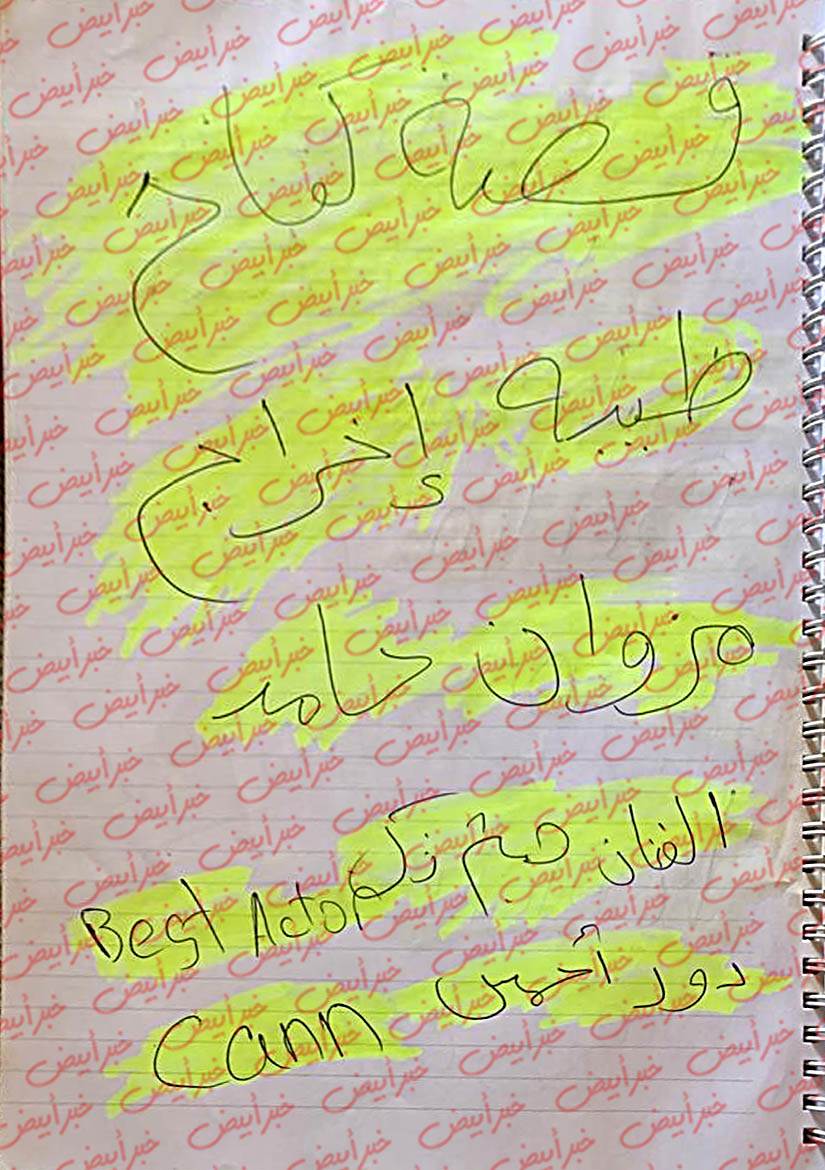 قصة كفاح
طيبه إخراج
مروان حامد
الفنان هيثم زكي Best Actor
دور أحمس Cann
خبر أبيض